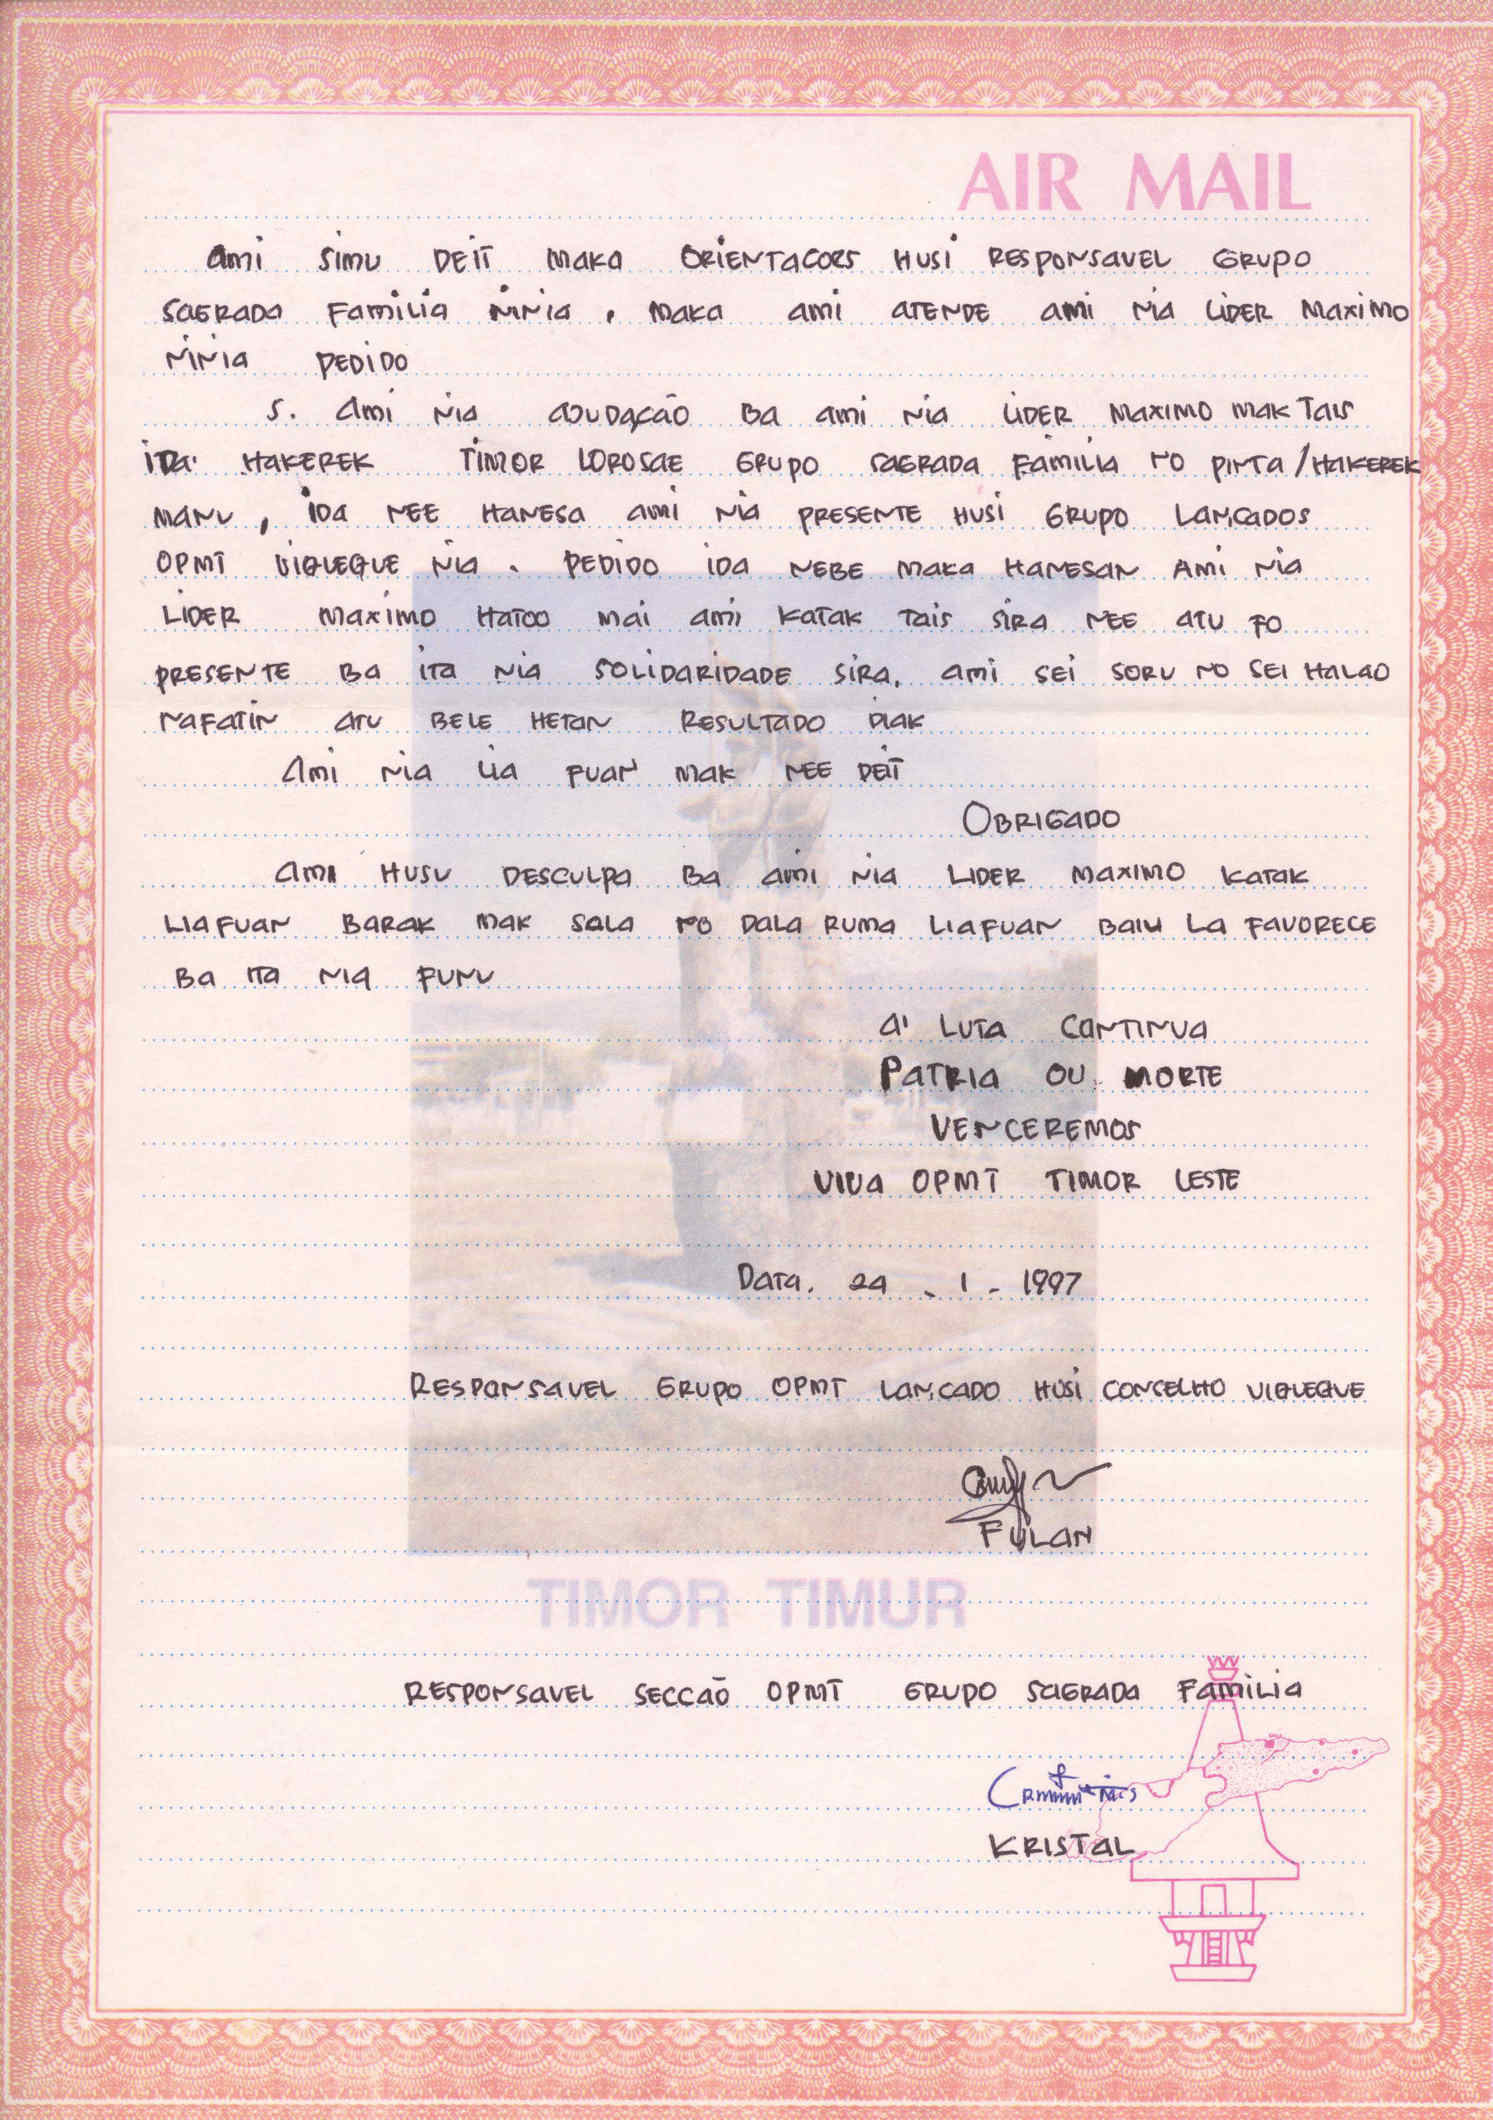 AIR MAIL
Ami simu deit maka orientacoes husi responsavel Grupo
Sagrada Familia ninia, maka ami atende ami nia Lider Maximo
ninia pedido
5. Ami nia ajudação ba ami nia Lider Maximo mak Tais
ida hakerek Timor Lorosae Grupo Sagrada Familia no pinta/hakerek
manu, ida nee hanesa ami nia presente husi Grupo Lançados
OPMT Viqueque nia. Pedido ida nebe maka hanesan ami nia
Lider Maximo hatoo mai ami katak tais sira nee atu fo
presente ba ita nia solidaridade sira, ami sei soru no sei halao
nafatin atu bele hetan resultado diak
Ami nia lia fuan mak nee deit
Obrigado
Ami husu desculpa ba ami nia Lider Maximo katak
liafuan barak mak sala no dala ruma liafuan la favorece
ba ita nia funu
A' Luta continua
Patria ou morte
Venceremos
Viva OPMT Timor Leste
Data. 24 - 1 - 1997
Responsavel Grupo OPMT Lançado husi Concelho Viqueque
Fulan
TIMOR TIMUR
Responsavel Seccão OPMT Grupo Sagrada Familia
Kristal